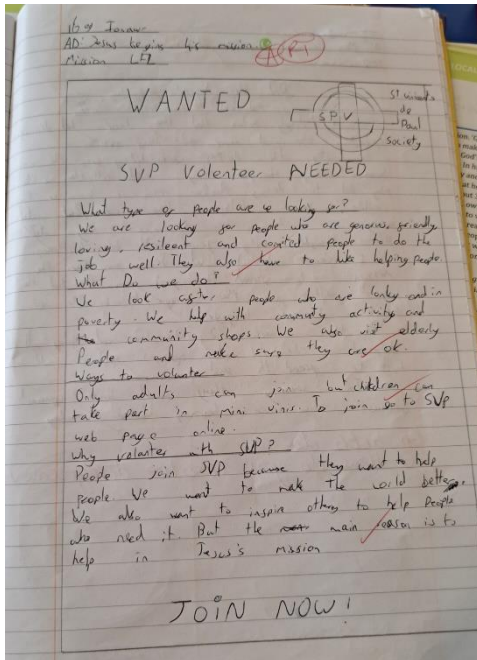 16 of January
AD: Jesus begins his mission.
Mission LF2
WANTED
SPV
St vincents
de
Paul
society
SVP Volenteer NEEDED
What type of people are we looking for?
We are looking for people who are generous, friendly
loving, resileent and comited people to do the
job well. They also have to like helping people.
What Do we do?
We look after people who are lonley and in
poverty. We help with community activity and
community shops. We also visit elderly
People and make sure they are ok.
Ways to volunter
Only adults can join but children can
take part in mini vinis. To join go to SVP
web page online.
Why volenter with SVP?
People join SVP because they want to help
people. We want to make The world better.
We also want to inspire others to help people
who need it. But the main reason is to
help in Jesus's mission
JOIN NOW!
LOCAL